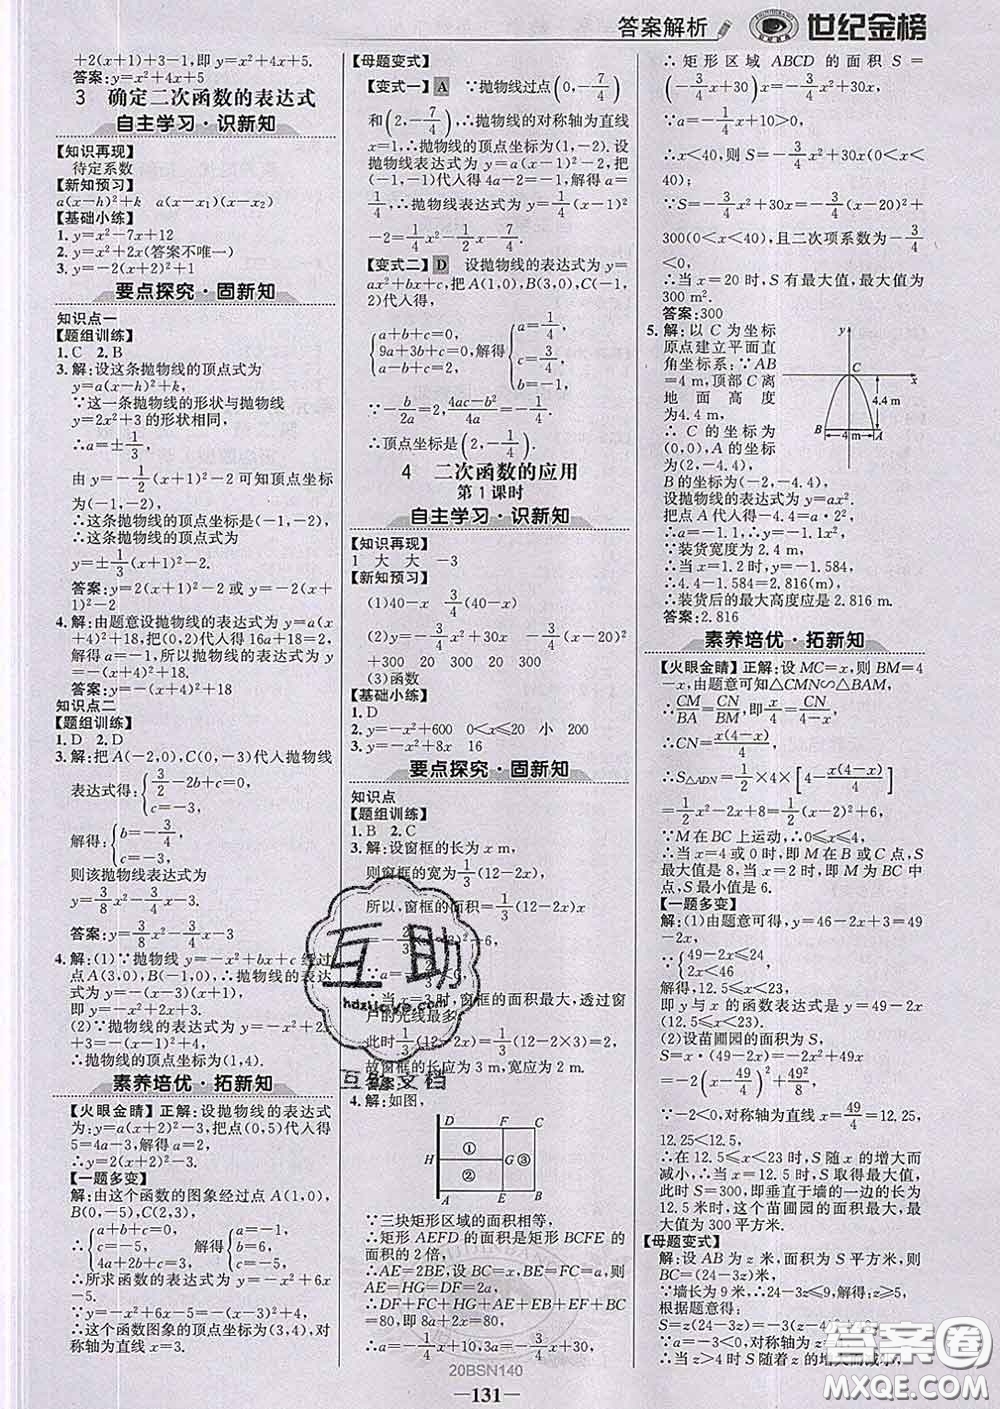 答案解析
世纪金榜
+2(x+2)+3-1,即y=x²+4x+5.
答案:y=x²+4x+5
3 确定二次函数的表达式
自主学习·识新知
【知识再现】
待定系数
【新知预习】
a(x-h)²+k a(x-x₁)(x-x₂)
【基础小练】
1. y=x²-7x+12
2. y=x²+2x(答案不唯一)
3. y=-2(x+2)²+1
要点探究·固新知
知识点一
【题组训练】
1. C 2. B
3. 解:设这条抛物线的顶点式为
y=a(x-h)²+k,
∵这一条抛物线的形状与抛物线
y=2x²+3的形状相同,
∴a=±1/3,
由 y=-1/2(x+1)²-2 可知抛物线
的顶点坐标是(-1,-2),
∴这条抛物线的顶点坐标是(-1,-2),
∴这条抛物线的顶点式为
y=±1/3(x+1)²-2.
答案:y=2(x+1)²-2或y=-2(x+
1)²-2
4. 解:由题意设抛物线的表达式为y=a(x
+4)²+18,把(0,2)代入得16a+18=2.
解得a=-1,所以抛物线的表达式为y=
-(x+4)²+18.
答案:y=-(x+4)²+18
知识点二
【题组训练】
1. D 2. D
3. 解:把A(-2,0),C(0,-3)代入抛物线
表达式得:{3/2-2b+c=0, c=-3,
解得:{b=-3/4, c=-3,
则该抛物线表达式为
y=3/8x²-3/4x-3.
答案:y=3/8x²-3/4x-3
4. 解:(1)∵抛物线 y=-x²+bx+c 经过
点A(3,0),B(-1,0),∴抛物线的表达
式为y=-(x-3)(x+1),
即y=-x²+2x+3.
(2)∵抛物线的表达式为y=-x²+2x
+3=-(x-1)²+4,
∴抛物线的顶点坐标为(1,4).
素养培优·拓新知
【火眼金睛】正解:设抛物线的表达式
为:y=a(x+2)²-3,代入点(0,5)得
5=4a-3,解得a=2,
∴y=2(x+2)²-3.
【一题多变】
解:由这个函数的图象经过点A(1,0),
B(0,-5),C(2,3),
{a+b+c=0, c=-5, 4a+2b+c=3, 解得{a=-1, b=6, c=-5,
∴所求函数的表达式为y=-x²+6x
-5.
∵y=-x²+6x-5=-(x-3)²+4,
∴这个函数图象的顶点为(3,4),对
称轴为直线x=3.
【母题变式】
【变式一】A ∵抛物线过点(0,-7/4)
和(2,-7/4),∴抛物线的对称轴为直线
x=1,∴抛物线的顶点为(1,-2).设
抛物线表达式为 y=a(x-1)²-2,把
(-1,-1)代入得4a-2=-1,解得a=
1/4,∴抛物线表达式为 y=1/4(x-1)²
-2=1/4x²-1/2x-7/4.
【变式二】D 设抛物线的表达式为y=
ax²+bx+c,把A(1,0),B(3,0),C(-1,
2)代入得,
{a+b+c=0, 9a+3b+c=0, 解得{a=1/4, c=3/4, b=-1,
∵-b/2a=2,(4ac-b²)/4a=-1/4,
∴顶点坐标是(2,-1/4).
4 二次函数的应用
第1课时
自主学习·识新知
【知识再现】
1 大 大 -3
【新知预习】
(1)40-x 3/4(40-x)
(2)y=-3/4x²+30x -3/4(x-20)²
+300 300 20 300
(3)函数
【基础小练】
1. D
2. y=-x²+600 0<x≤20 小 200
3. y=-x²+8x 16
要点探究·固新知
知识点
【题组训练】
1. B 2. C
3. 解:设窗框的长为x m,
则窗框的宽为1/3(12-2x)m,
所以,窗框的面积=1/3(12-2x)x
∴当x=3时,窗框的面积最大,透过窗
户的光线最多,
此时1/3(12-2x)=1/3(12-2×3)=2,
故窗框的长应为3 m,宽应为2 m.
答案
4. 解:如图,
D F C
H ① G ③
②
A E B
∵三块矩形区域的面积相等,
∴矩形AEFD的面积是矩形BCFE
的面积的2倍,
∴AE=2BE,设BC=x,BE=FC=a,则
AE=HG=DF=2a,
∴DF+FC+HG+AE+EB+EF+BC
=80,即8a+2x=80,
∴a=-1/4x+10,3a=-3/4x+30,
∴矩形区域 ABCD 的面积S=
(-3/4x+30)x=-3/4x²+30x,
∵a=-1/4x+10>0,
∴x<40,则S=-3/4x²+30x(0<x<
40);
∵S=-3/4x²+30x=-3/4(x-20)²+
300(0<x<40),且二次项系数为-3/4
<0,
∴当x=20时,S有最大值,最大值为
300 m².
答案:300
5. 解:以C为坐标
原点建立平面直
角坐标系:∵AB
=4 m,顶部C离
地面高度
为4.4 m,
∴C的坐标为
(0,0),A的坐标
为(2,-4.4),
B的坐标为(-2,-4.4),
设抛物线的表达式为y=ax²,
把点A代入得-4.4=a·2²,
∴a=-1.1,∴y=-1.1x²,
∵装货宽度为2.4 m,
∴当x=1.2时,y=-1.584,
∴4.4-1.584=2.816(m),
∴装货后的最大高度应是2.816 m.
答案:2.816
y
C
x
4.4 m
B 4 m A
素养培优·拓新知
【火眼金睛】正解:设MC=x,则BM=4
-x,由题意可知△CMN∽△BAM,
∴CM/BA=CN/BM,即x/4=CN/(4-x),
∴CN=x(4-x)/4,
∴S△ADN=1/2×4×[4-x(4-x)/4]
=1/2x²-2x+8=1/2(x-2)²+6,
∵M在BC上运动,∴0≤x≤4,
∴当x=4或0时,即M在B或C点,S
最大值是8,当x=2时,即M在BC中
点,S最小值是6.
【一题多变】
解:(1)由题意可得,y=46-2x+3=49
-2x,
∵{49-2x≥2x, 2x<46
解得,12.5≤x<23,
即y与x的函数表达式是y=49-2x
(12.5≤x<23).
(2)设苗圃园的面积为S,
S=x·(49-2x)=-2x²+49x=
-2(x-49/4)²+49²/8,
∵-2<0,对称轴为直线x=49/4=12.25,
12.25<12.5,
∴在12.5≤x<23时,S随x的增大而
减小,∴当x=12.5时,S取得最大值,
此时S=300,即垂直于墙的一边的长为
12.5米时,这个苗圃园的面积最大,最
大值为300平方米.
【母题变式】
解:设AB为z米,面积为S平方米,则
BC=(24-3z)米,
∵墙长为9米,∴24-3z≤9,解得:z≥5,
根据题意得:
S=z(24-3z)=
∵a=-3<0,对称轴为直线
∴当z>4时,S随着z的增大而减小.
互助
hdzuoye.com
互助文档
20BSN140
—131—
答案圈
MXQE.COM